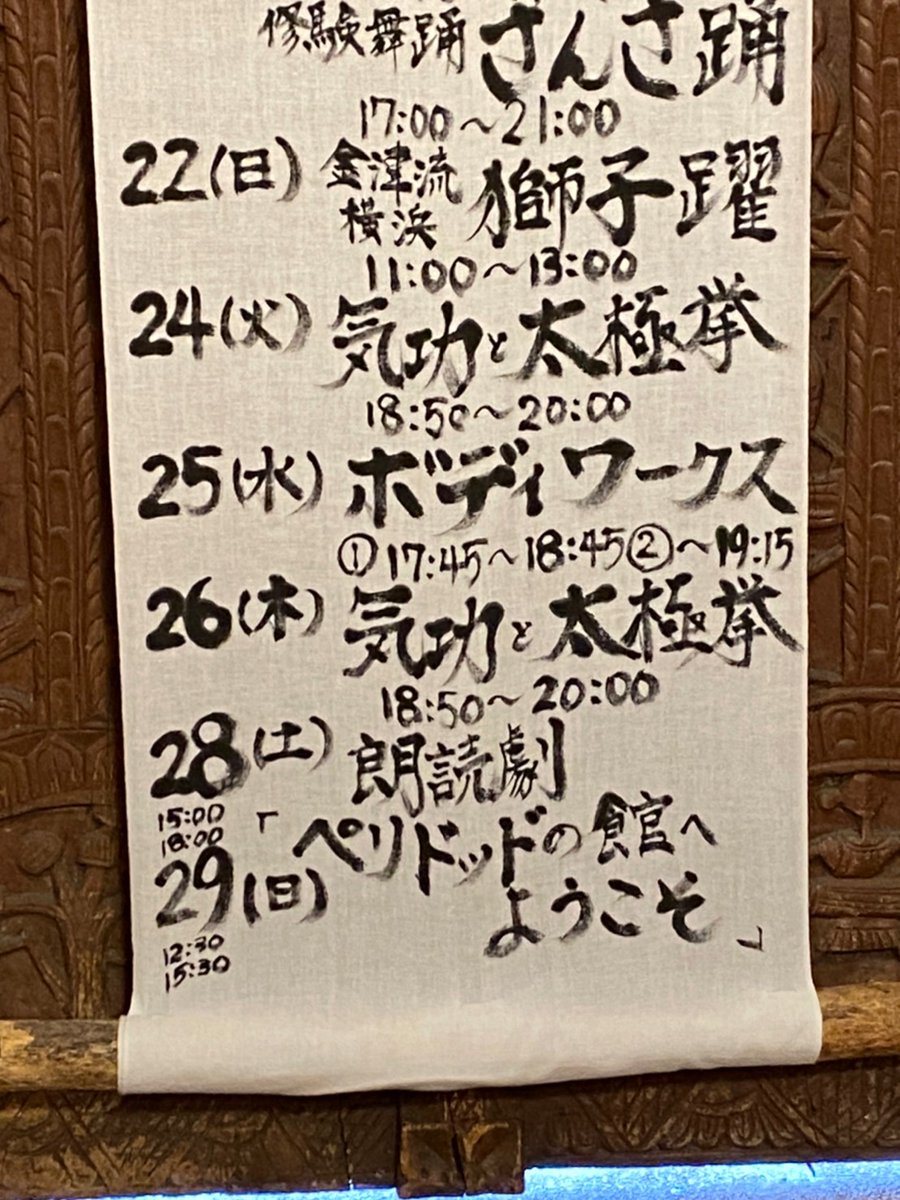 修験舞踊 さんさ踊
17:00～21:00
22(日) 金津流 横浜 獅子躍
11:00～13:00
24(火) 気功と太極拳
18:50～20:00
25(水) ボディワークス
① 17:45～18:45 ② ～19:15
26(木) 気功と太極拳
18:50～20:00
28(土) 朗読劇
15:00
18:00
「ペリドッドの館へ
29(日) ようこそ」
12:30
15:30